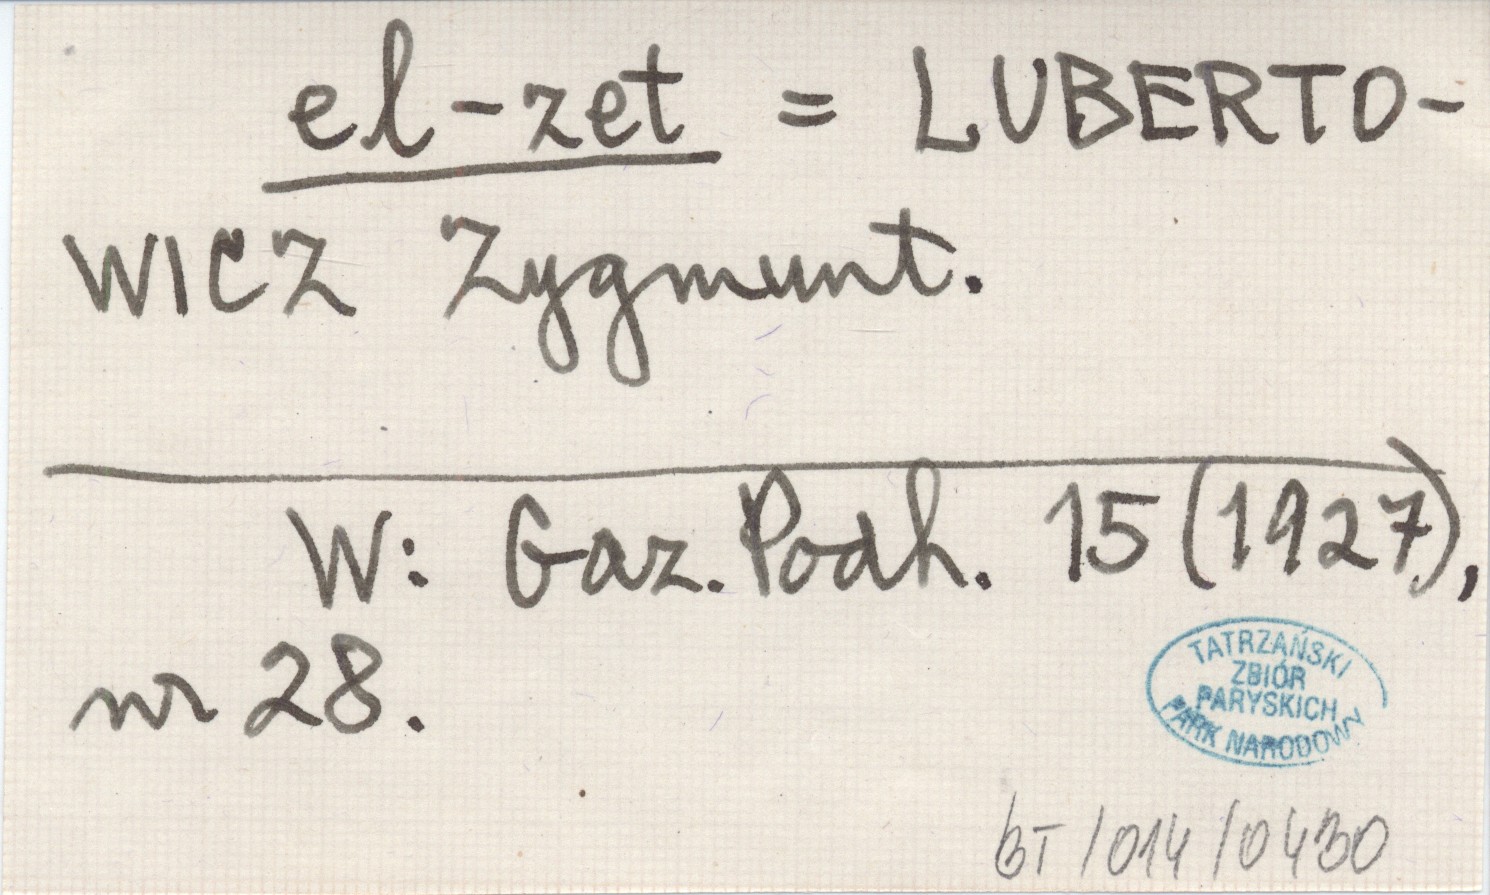 el-zet = LUBERTO-
WICZ Zygmunt.
W: Gaz. Podh. 15 (1927),
nr 28.
TATRZAŃSKI
ZBIÓR
PARYSKICH
PARK NARODOWY
BT/014/0430